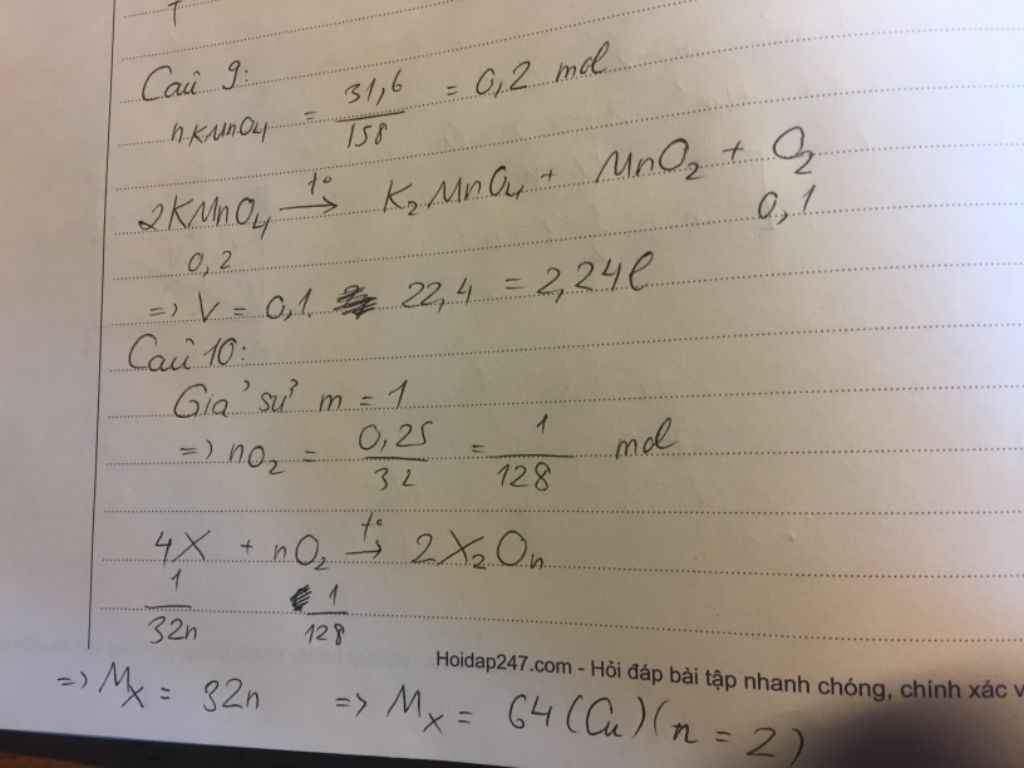 Câu 9:
nKMnO4 = 31,6/158 = 0,2 mol
2KMnO4 →t° K2MnO4 + MnO2 + O2
0,2 0,1
=> V = 0,1. 22,4 = 2,24l
Câu 10:
Giả sử m = 1
=> nO2 = 0,25/32 = 1/128 mol
4X + nO2 →t° 2X2On
1/32n 1/128
Hoidap247.com - Hỏi đáp bài tập nhanh chóng, chính xác v
=> MX = 32n => MX = 64 (Cu) (n = 2)